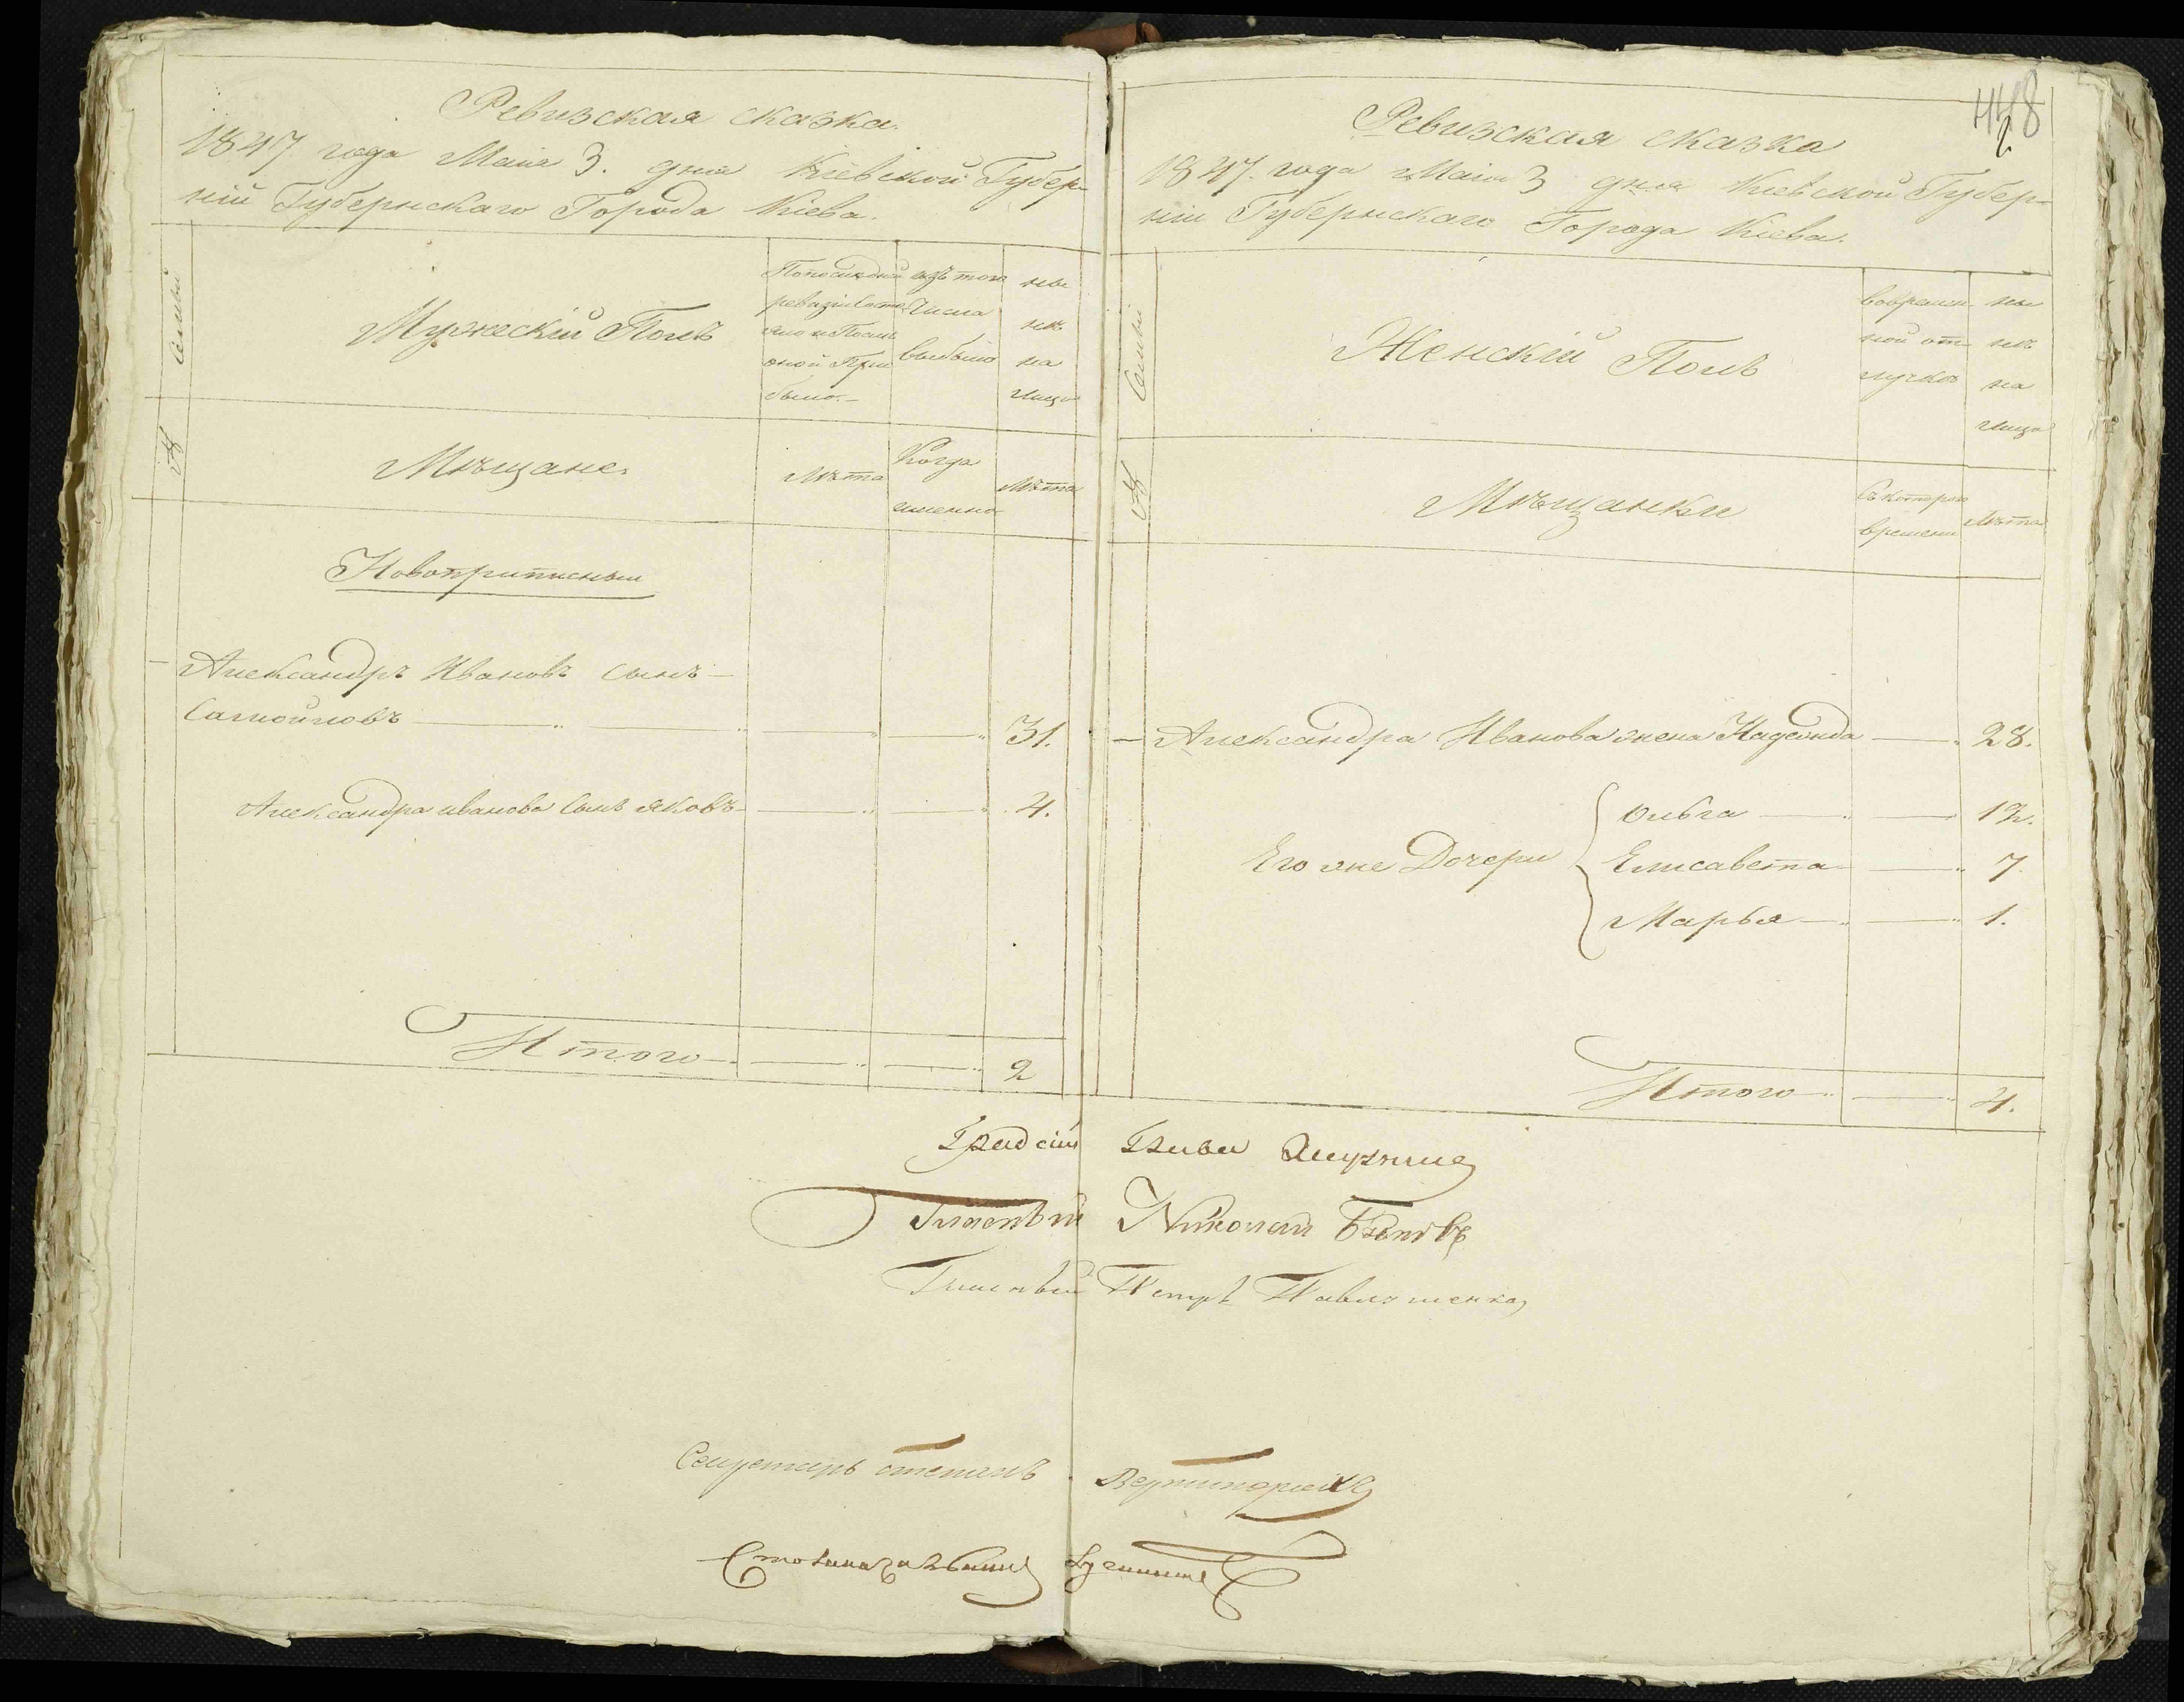 Ревизская сказка.
1847 года Маия 3. дня Кіевской Губер-
ніи Губернскаго Города Кіева.
Семьи
Мужескій Полъ
По последней
ревизіи состо
яло и после
оной при
было.
изъ того
числа
выбыло
ны
нѣ
на
лицо
№
Мѣщане.
Лѣта
Когда
именно
Лѣта
Новоприписныи
Александръ Ивановъ сынъ
Самойловъ 31.
Александра иванова сынъ яковъ 4.
Итого 2
448
2
Ревизская сказка
1847. года Маия 3 дня Кіевской Губер-
ніи Губернскаго Города Кіева.
Семьи
Женскій Полъ
вовремен
ной от
лучкѣ
ны
нѣ
на
лицо
№
Мѣщанки
Съ котораго
времени
Лѣта
Александра Иванова жена Надежда 28.
Его же Дочери
Ольга 12.
Елисавета 7.
Марья 1.
Итого 4.
Градскій Глава
Гласный Николай
Гласный Петръ Павлушенко
Секретарь степанъ
Столоначальникъ